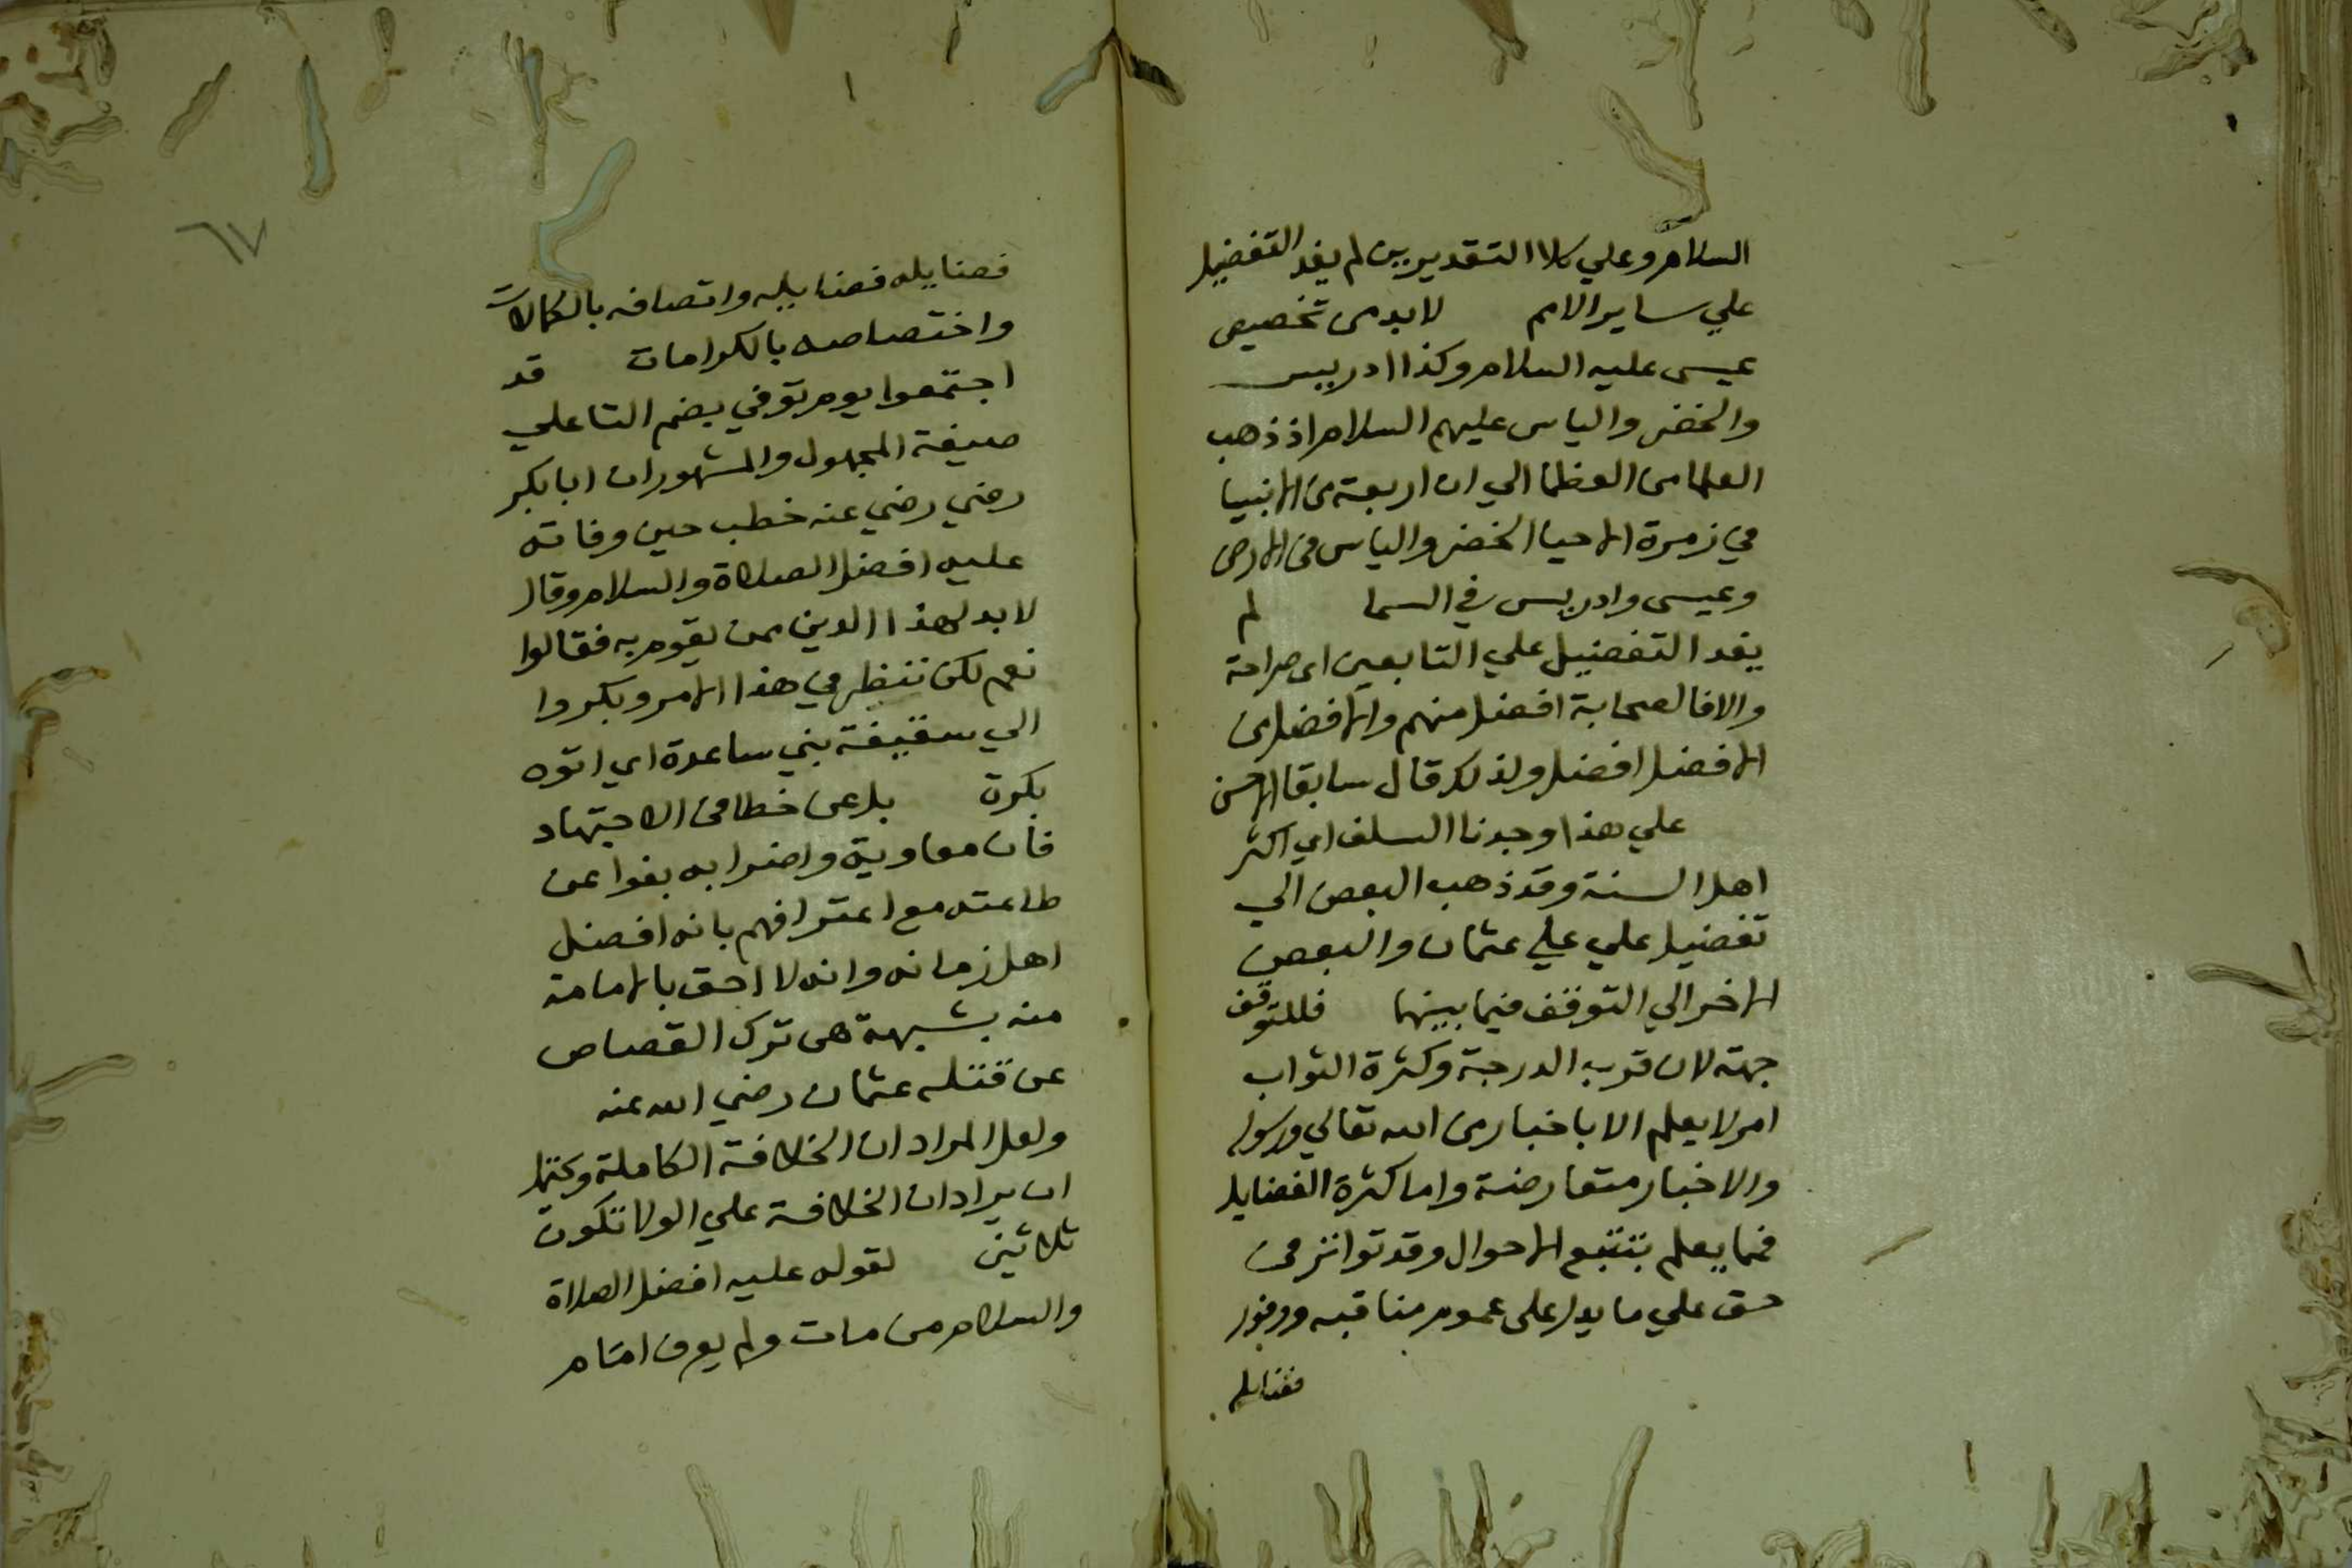 السلام وعلي كلا التقديرين لم يفد التفضيل
علي ساير الامم لا بد من تخصيص
عيسى عليه السلام وكذا ادريس
والخضر والياس عليهم السلام اذ ذهب
العلما من العظما الي ان اربعة من الانبيا
في زمرة الاحيا الخضر والياس في الارض
وعيسى وادريس في السما لم
يفد التفضيل علي التابعين اى صراحة
والا فالصحابة افضل منهم والافضل من
الافضل افضل ولذلك قال سابقا الاحسن
علي هذا وجدنا السلف اي اكثر
اهل السنة وقد ذهب البعض الي
تفضيل علي علي عثمان والبعض
الاخر الي التوقف فيما بينهما فللتوقف
جهة لان قرب الدرجة وكثرة الثواب
امر لا يعلم الا باخبار من الله تعالي ورسوله
والاخبار متعارضة واما كثرة الفضايل
فمما يعلم بتتبع الاحوال وقد تواتر في
حق علي ما يدل على عموم مناقبه ووفور
فضايله
٦٧
فضايله فضايله واتصافه بالكمالات
واختصاصه بالكرامات قد
اجتمعوا يوم توفي بضم التا علي
صيغة المجهول والمشهور ان ابا بكر
رضي رضي عنه خطب حين وفاته
عليه افضل الصلاة والسلام وقال
لا بد لهذا الدين ممن يقوم به فقالوا
نعم لكن ننظر في هذا الامر وبكروا
الي سقيفة بني ساعدة اي اتوه
بكرة بل عن خطا في الاجتهاد
فان معاوية واضرابه بغوا عن
طاعته مع اعترافهم بانه افضل
اهل زمانه وانه لا احق بالامامة
منه بشبهة هي ترك القصاص
عن قتله عثمان رضي الله عنه
ولعل المراد ان الخلافة الكاملة ويحتمل
ان يراد ان الخلافة علي الولا تكون
ثلاثين لقوله عليه افضل الصلاة
والسلام من مات ولم يعرف امام